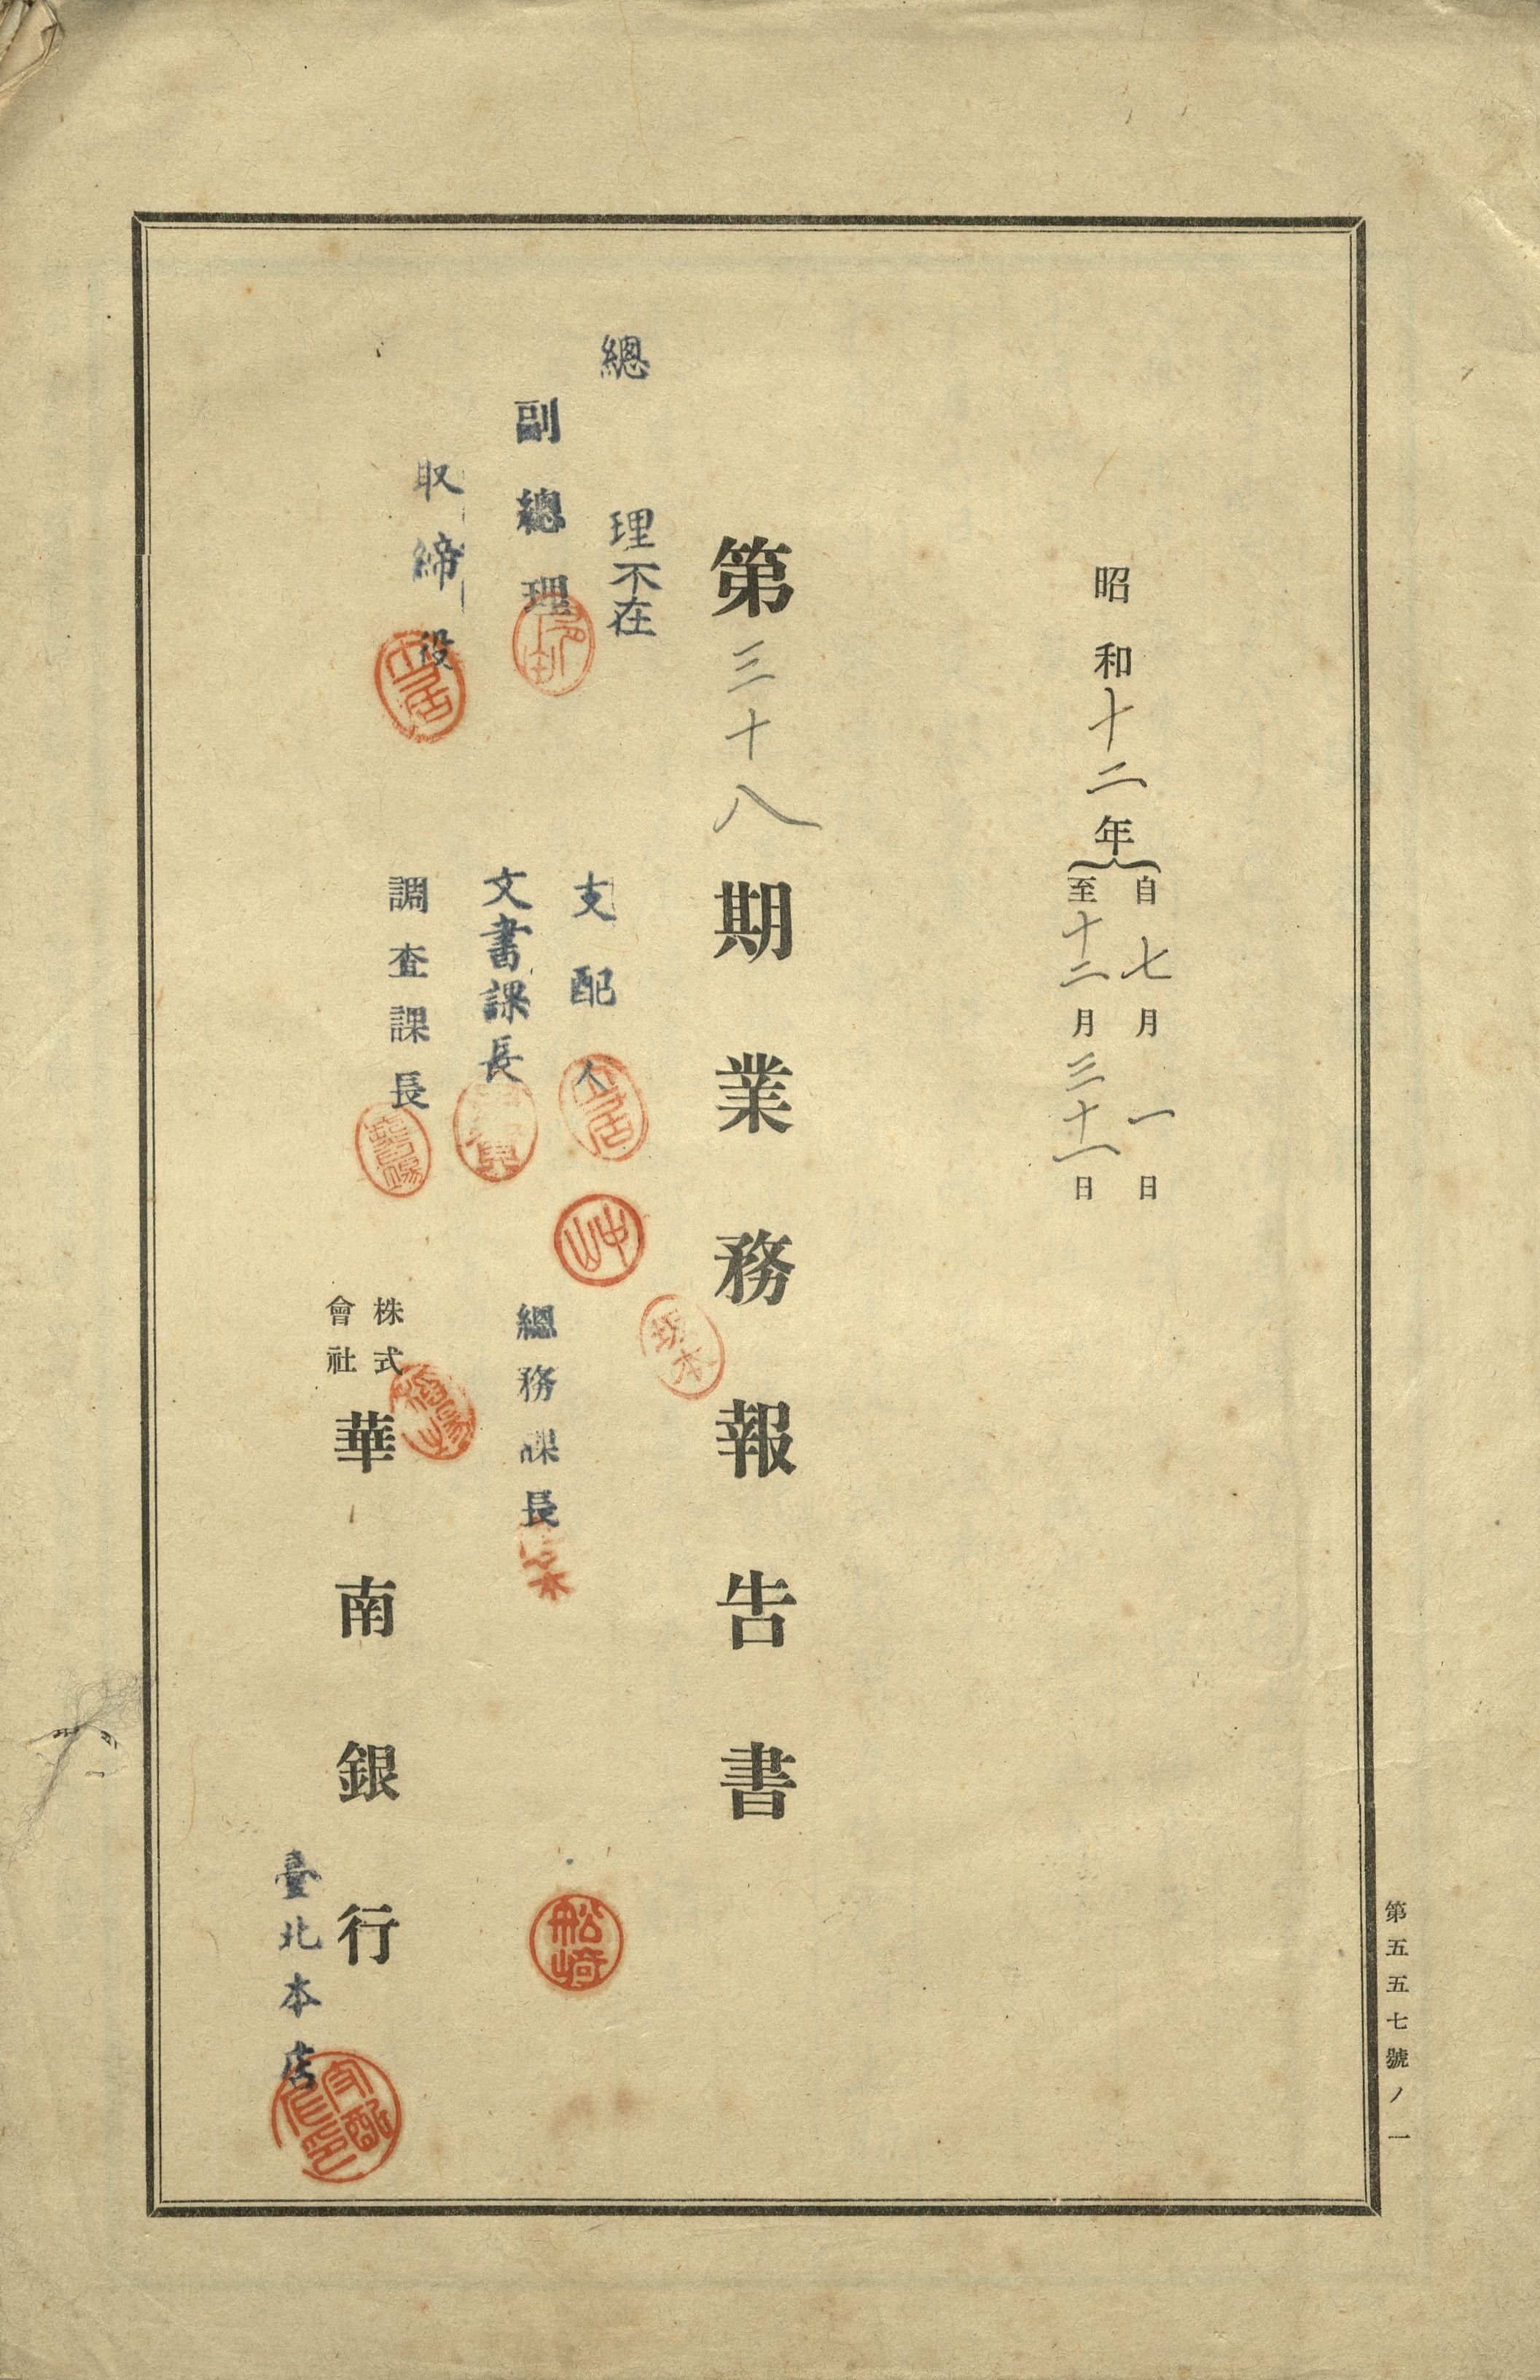 昭和十二年
自七月一日
至十二月三十一日
第三十八期業務報告書
總理不在
副總理
取締役
支配人
文書課長
調査課長
坂本
總務課長
松崎
株式會社
華南銀行
臺北本店
第五五七號ノ一